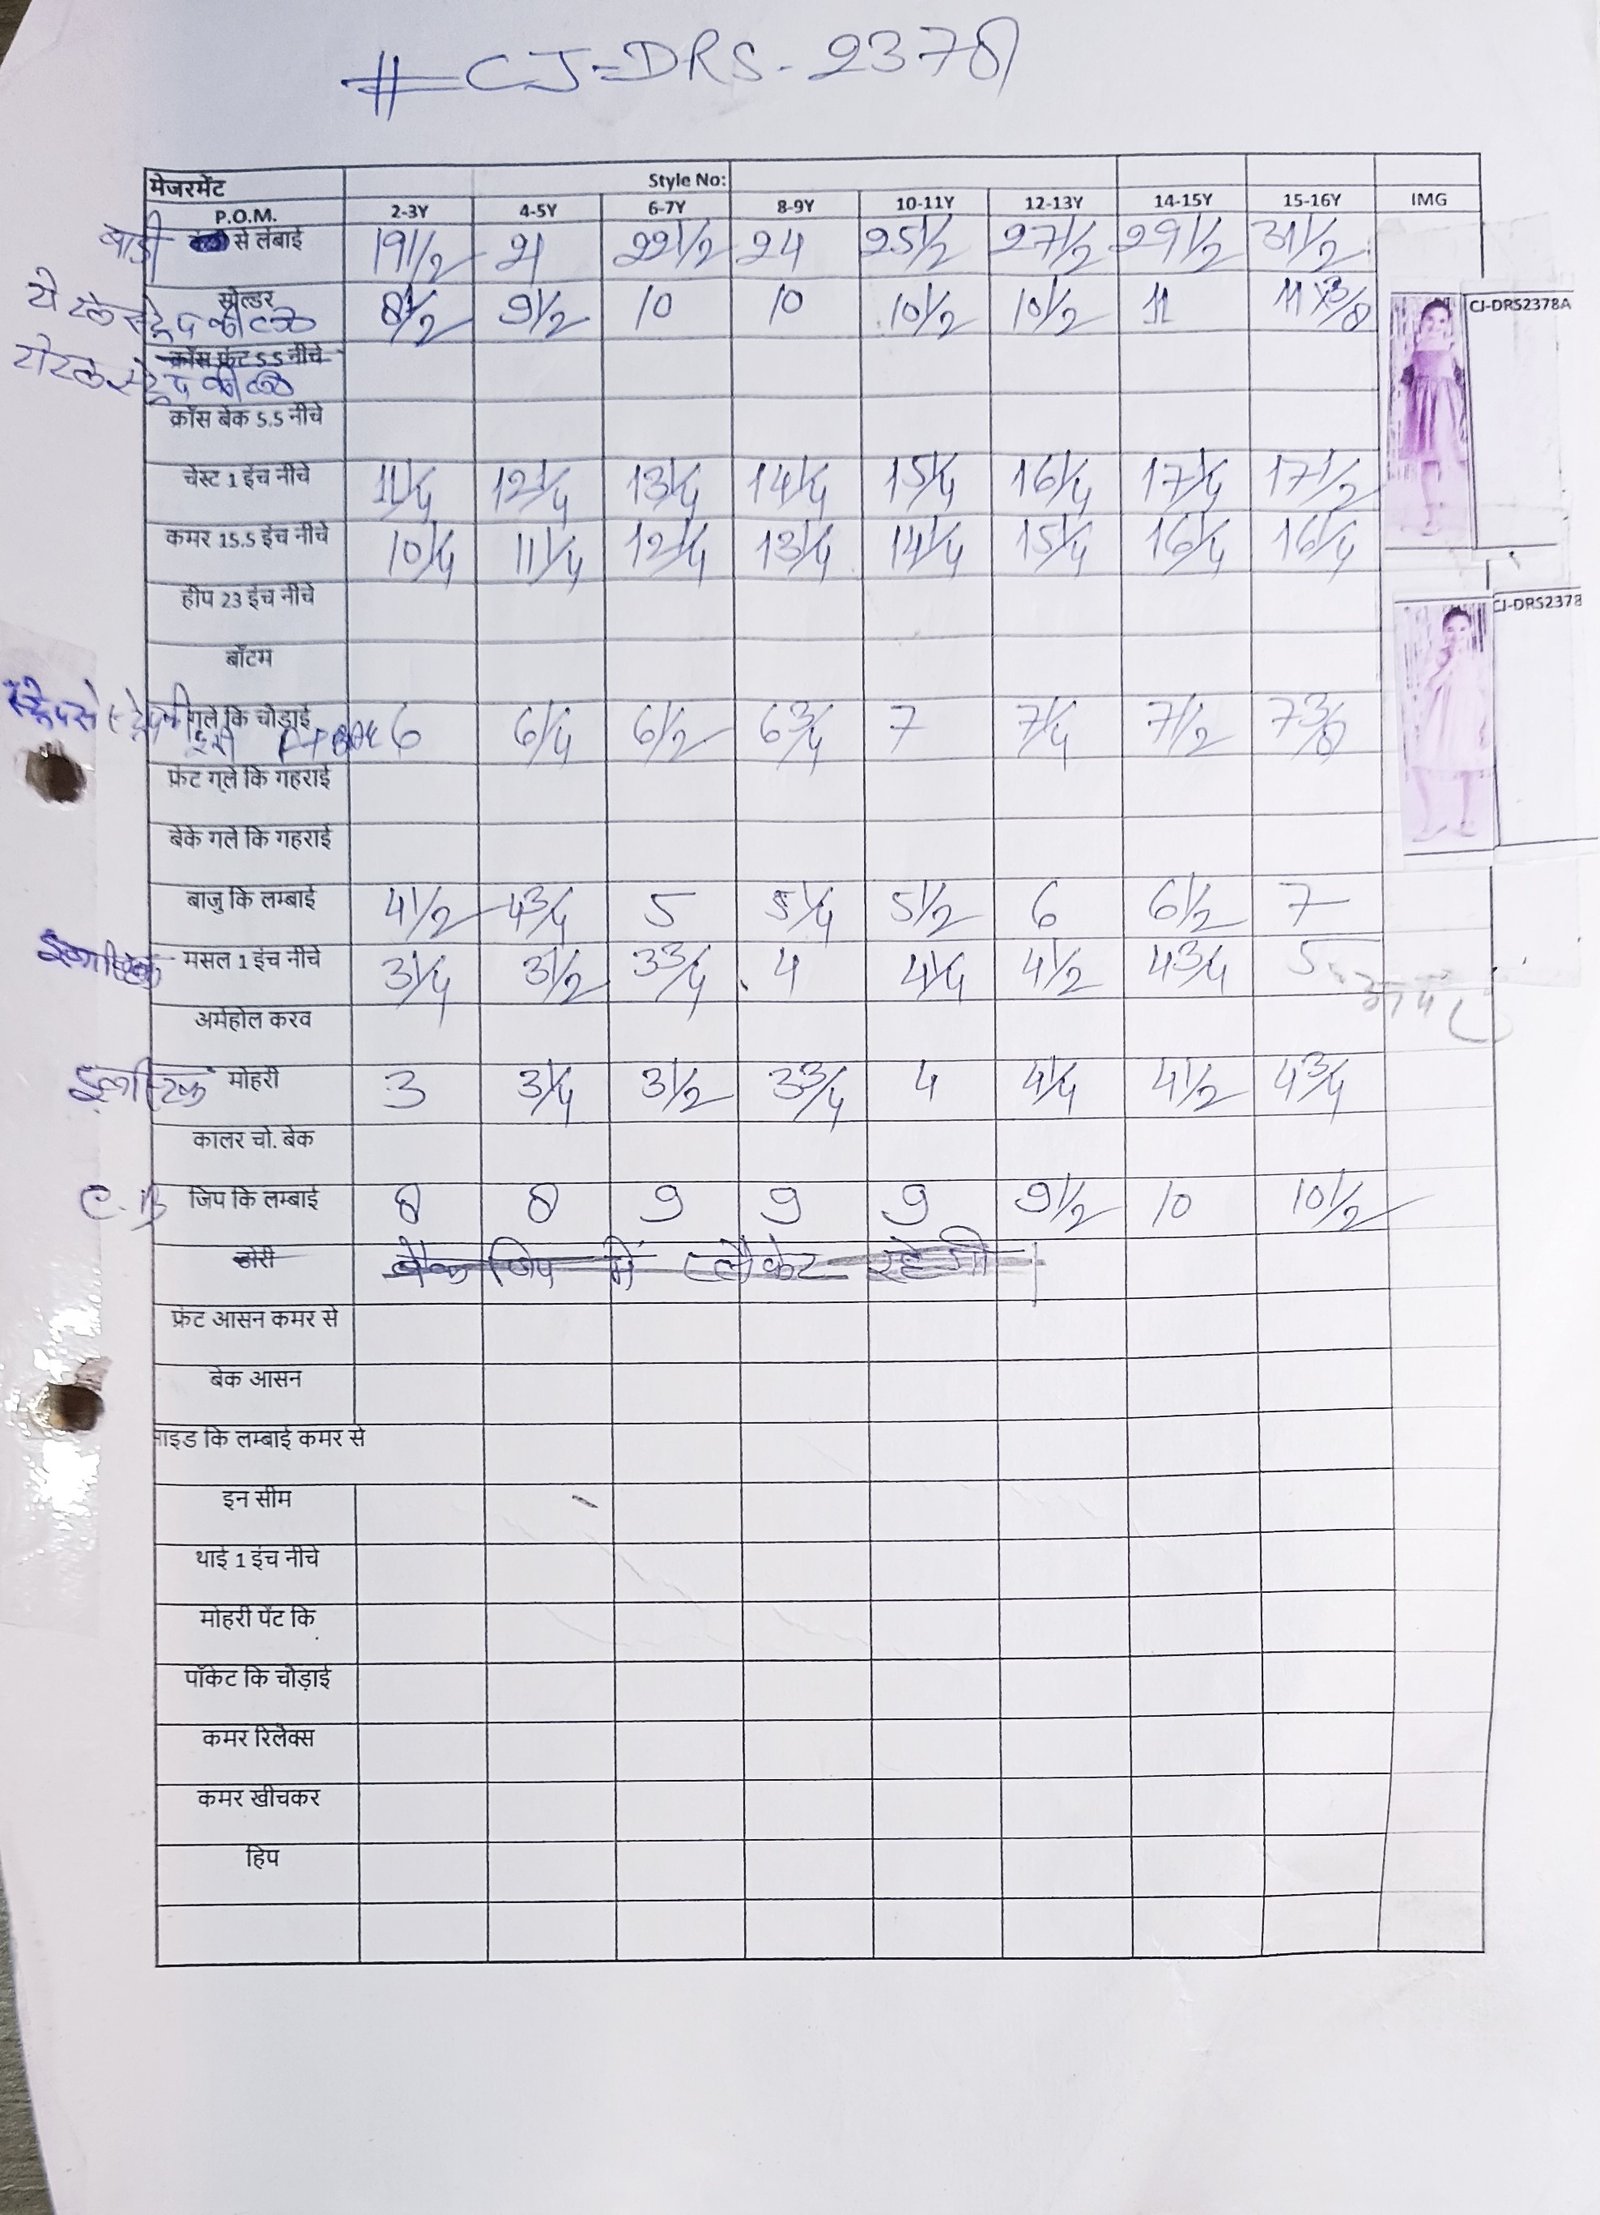 #CJ-DRS-2378
मेजरमेंट Style No:
P.O.M. 2-3Y 4-5Y 6-7Y 8-9Y 10-11Y 12-13Y 14-15Y 15-16Y IMG
बाडी से लंबाई 19 1/2 21 22 1/2 24 25 1/2 27 1/2 29 1/2 31 1/2
शोल्डर 8 1/2 9 1/2 10 10 10 1/2 10 1/2 11 11 3/8
टोटल स्ट्रेप की
CJ-DRS2378A
क्रॉस फ्रंट 5.5 नीचे
टोटल स्ट्रेप की
क्रॉस बेक 5.5 नीचे
चेस्ट 1 इंच नीचे 11 1/4 12 1/4 13 1/4 14 1/4 15 1/4 16 1/4 17 1/4 17 1/2
कमर 15.5 इंच नीचे 10 1/4 11 1/4 12 1/4 13 1/4 14 1/4 15 1/4 16 1/4 16 1/4
हीप 23 इंच नीचे
CJ-DRS2378
बॉटम
गले कि चोड़ाई 6 6 1/4 6 1/2 6 3/4 7 7 1/4 7 1/2 7 3/8
फ्रंट गले कि गहराई
बेके गले कि गहराई
बाजु कि लम्बाई 4 1/2 4 3/4 5 5 1/4 5 1/2 6 6 1/2 7
इलास्टिक मसल 1 इंच नीचे 3 1/4 3 1/2 3 3/4 4 4 1/4 4 1/2 4 3/4 5
अर्महोल करव
इलास्टिक मोहरी 3 3 1/4 3 1/2 3 3/4 4 4 1/4 4 1/2 4 3/4
कालर चो. बेक
C.B जिप कि लम्बाई 8 8 9 9 9 9 1/2 10 10 1/2
डोरी बैक जिप में प्लैकेट रहेगी।
फ्रंट आसन कमर से
बेक आसन
साइड कि लम्बाई कमर से
इन सीम
थाई 1 इंच नीचे
मोहरी पेंट कि
पॉकेट कि चोड़ाई
कमर रिलेक्स
कमर खीचकर
हिप